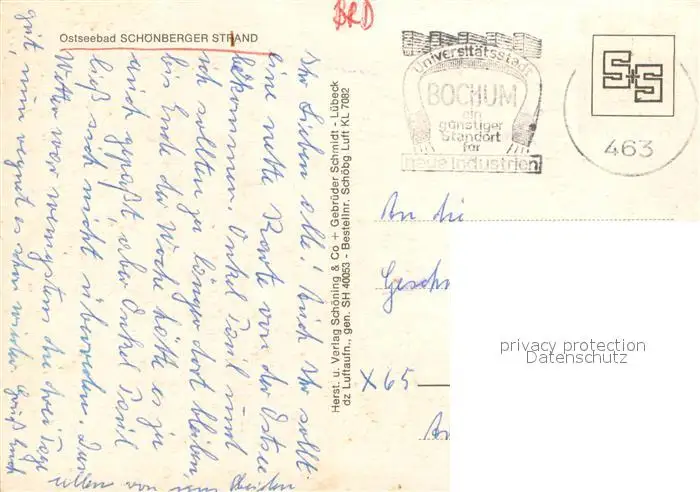 Ostseebad SCHÖNBERGER STRAND
BRD
Ihr Lieben alle! Auch Ihr sollt
eine nette Karte von der Ostsee
bekommen. Onkel Paul und
ich sollten ja länger dort bleiben,
bis Ende der Woche hätte es ja
auch gepaßt, aber Onkel Paul
ließ sich nicht überreden. Das
Wetter war wenigstens die drei Tage
gut, nun regnet es schon wieder. Gruß Euch
allen von uns Beiden
Herst. u. Verlag Schöning & Co + Gebrüder Schmidt - Lübeck
dz Luftaufn., gen. SH 40053 - Bestellnr. Schöbg Luft KL 7082
Universitätsstadt
BOCHUM
ein
günstiger
Standort
für
neue Industrien
S+S
463
An die
Gesch
X65
privacy protection
Datenschutz